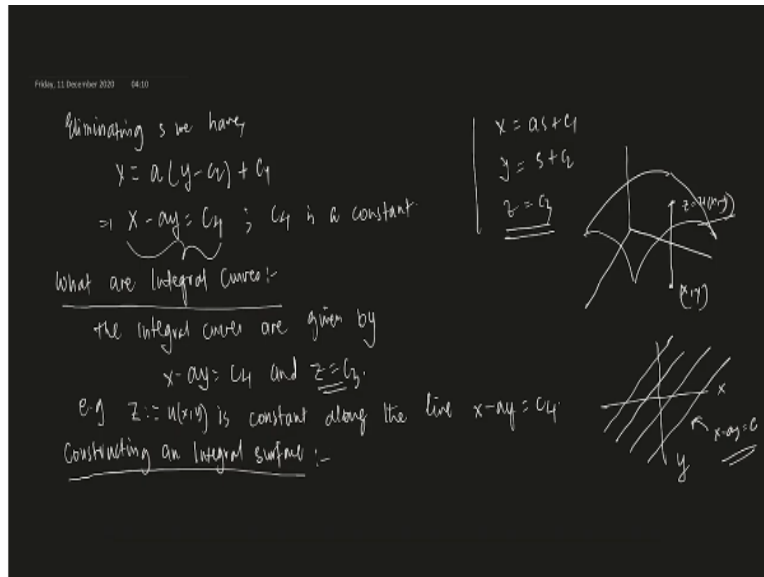 Friday, 11 December 2020 04:10
Eliminating s we have,
x = a(y-c2) + c1
⇒ x - ay = c4 ; c4 is a constant.
What are Integral Curves:-
The integral curves are given by
x-ay = c4 and z=c3.
e.g z:= u(x,y) is constant along the line x-ay = c4.
Constructing an Integral surface:-
x = as+c1
y = s+c2
z = c3
z=u(x,y)
(x,y)
x
x-ay=c
y